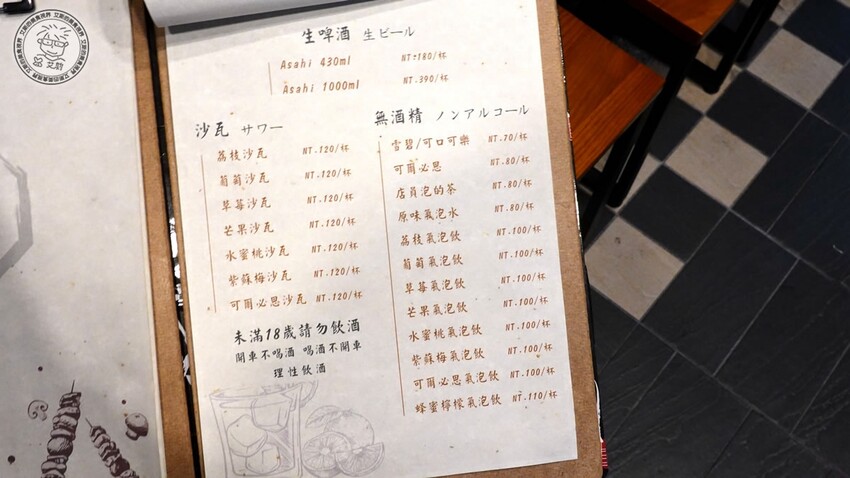 生啤酒 生ビール
Asahi 430ml NT.180/杯
Asahi 1000ml NT.390/杯
沙瓦 サワー
荔枝沙瓦 NT.120/杯
葡萄沙瓦 NT.120/杯
草莓沙瓦 NT.120/杯
芒果沙瓦 NT.120/杯
水蜜桃沙瓦 NT.120/杯
紫蘇梅沙瓦 NT.120/杯
可爾必思沙瓦 NT.120/杯
未滿18歲請勿飲酒
開車不喝酒 喝酒不開車
理性飲酒
無酒精 ノンアルコール
雪碧/可口可樂 NT.70/杯
可爾必思 NT.80/杯
店員泡的茶 NT.80/杯
原味氣泡水 NT.80/杯
荔枝氣泡飲 NT.100/杯
葡萄氣泡飲 NT.100/杯
草莓氣泡飲 NT.100/杯
芒果氣泡飲 NT.100/杯
水蜜桃氣泡飲 NT.100/杯
紫蘇梅氣泡飲 NT.100/杯
可爾必思氣泡飲 NT.100/杯
蜂蜜檸檬氣泡飲 NT.110/杯